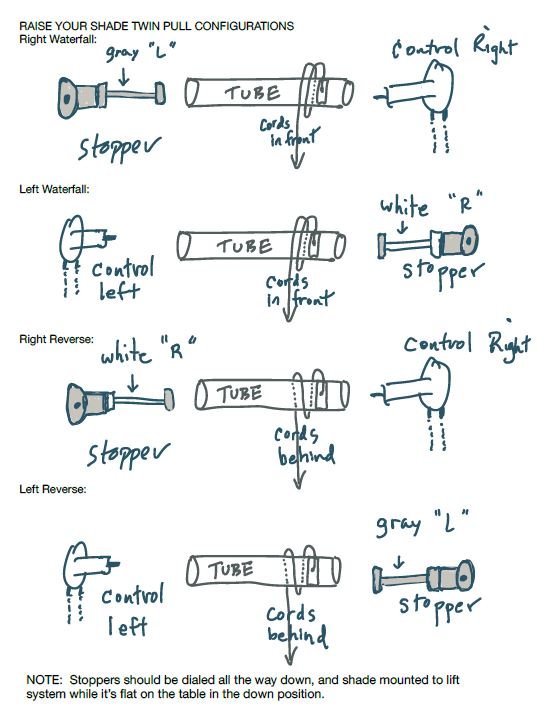 RAISE YOUR SHADE TWIN PULL CONFIGURATIONS
Right Waterfall:
gray "L"
Control Right
TUBE
Cords
in front
Stopper
Left Waterfall:
white "R"
TUBE
stopper
control
left
Cords
in front
Right Reverse:
white "R"
Control Right
TUBE
Cords
behind
stopper
Left Reverse:
gray "L"
TUBE
control
left
Cords
behind
stopper
NOTE: Stoppers should be dialed all the way down, and shade mounted to lift
system while it's flat on the table in the down position.